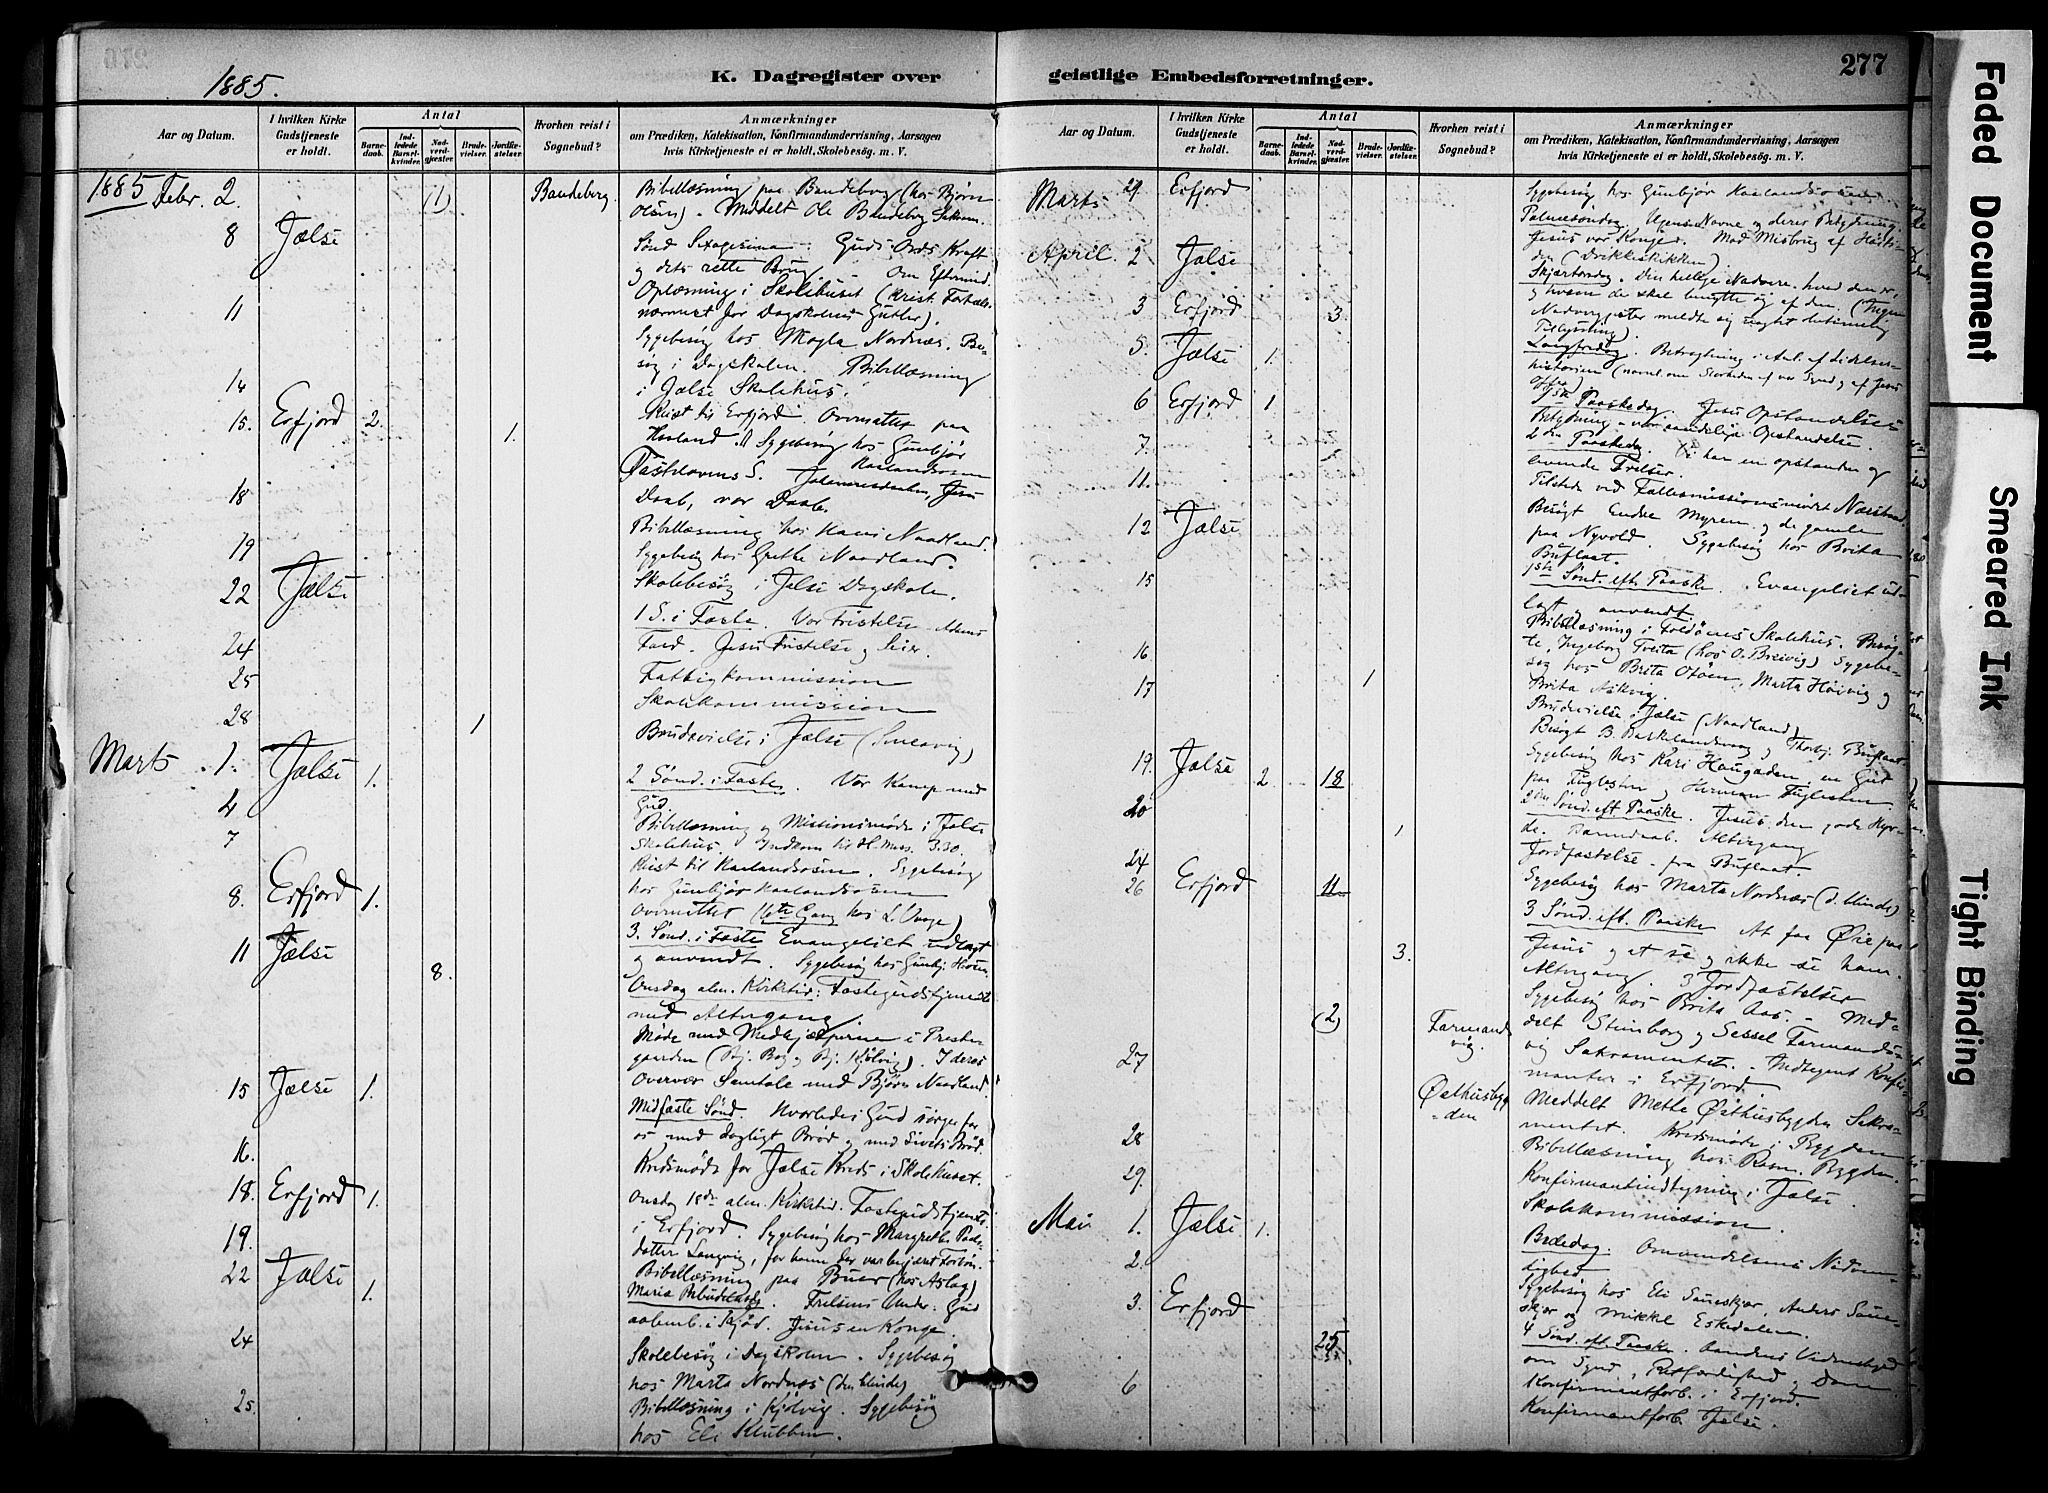 276
1885.
K. Dagregister over
geistlige Embedsforretninger.
277
Aar og Datum.
I hvilken Kirke Gudstjeneste er holdt.
Antal
Barnedaab.
Indledede Barselkvinder.
Nadverdgjæster.
Brudevielser.
Jordfæstelser.
Hvorhen reist i Sognebud?
Anmærkninger
om Prædiken, Katekisation, Konfirmandundervisning, Aarsagen
hvis Kirketjeneste ei er holdt, Skolebesög. m. V.
1885 Febr. 2. (1) Bandeberg
Bibellæsning paa Bandeberg (hos Bjørn
Olsen). Meddelt Ole Bandeberg Sakram.
8 Jælse
Sønd Sexagesima. Guds Ords Kraft
og dets rette Brug. Om Eftermid.
Oplæsning i Skolehuset (Krist. Fortæl.
11
nærmest for Dagskolens Gutter).
Sygebesøg hos Magla Nordnæs. Be-
søg i Dagskolen. Bibellæsning
14
i Jælse Skolehus.
15. Erfjord 2. 1.
Reist til Erfjord. Overnattet paa
Hauland. Sygebesøg hos Gunbjør
Haulandsosen
Fastelavns S. Johannesdaaben, Jesu
18
Daab, vor Daab.
Bibellæsning hos Kari Naadland.
19
Sygebesøg hos Grethe Naadland.
22 Jælse
Skolebesøg i Jælse Dagskole.
1 S. i Faste. Vor Fristelse Adams
24
Fald. Jesu Fristelse og Seier.
25
Fattigkommission
Skolekommission
28 1
Brudevielse i Jælse (Smeavig)
Marts 1. Jælse 1.
2 Sønd. i Faste. Vor Kamp med
4
Gud.
Bibellæsning og Missionsmøde i Jælse
7
Skolehus. Indkom til H. Miss. 3.30.
Reist til Haulandsosen. Sygebesøg
8. Erfjord 1.
hos Gunbjør Haulandsosen
Overnattet (6te Gang hos L. Vaage)
11 Jælse 8.
3. Sønd. i Faste Evangeliet udlagt
og anvendt. Sygebesøg hos Gunbj.
Onsdag alm. Kirketid: Fastegudstjeneste
med Altergang.
Møde med Medhjælperne i Præste-
gaarden
15 Jælse 1.
Overvær Samtale med Bjørn Naadland.
Midfaste Sønd. Hvorledes Gud sørger for
16.
os med dagligt Brød og med Livets Brød.
Kredsmøde for Jælse Kreds i Skolehuset.
18. Erfjord 1.
Onsdag 18de alm. Kirketid. Fastegudstjeneste
i Erfjord. Sygebesøg hos Margrethe Peds-
19.
datter Langvig, for hvem der var begjæret Forbøn.
22 Jælse 1.
Bibellæsning paa Buer (hos Aslag)
Mariæ Bebudelsesdg. Frelsens Under: Gud
aabenb. i Kjød. Jesus en Konge.
24
Skolebesøg i Dagskolen. Sygebesøg
hos Marta Nordnæs (den blinde)
25.
Bibellæsning i Kjølvig. Sygebesøg
hos Eli Klubben.
Aar og Datum.
I hvilken Kirke Gudstjeneste er holdt.
Antal
Barnedaab.
Indledede Barselkvinder.
Nadverdgjæster.
Brudevielser.
Jordfæstelser.
Hvorhen reist i Sognebud?
Anmærkninger
om Prædiken, Katekisation, Konfirmandundervisning, Aarsagen
hvis Kirketjeneste ei er holdt, Skolebesög. m. V.
Marts 29. Erfjord
Sygebesøg hos Gunbjør Haulandsosen
Palmesøndag. Ugens Navne og deres Betydning.
Jesus vor Konge. Mod Misbrug af Høiti-
den (Drikkeskikken).
April. 2 Jælse
Skjærtorsdag. Den hellige Nadvere, hvad den er,
og hvem der skal benytte sig af den. (Ingen
3 Erfjord 3.
Nadvergjæster meldte sig
5. Jælse 1.
Langfredag. Betragtning i Anl. af Lidelses-
historien (navnl. om Storheden af vor Synd og af Jesu
Offer).
6 Erfjord 1.
1ste Paaskedag. Jesu Opstandelses
Betydning – vor aandelige Opstandelse.
7.
2den Paaskedag. Vi har en opstanden og
levende Frelser.
11.
Tilstede ved Fællesmissionsmødet Næsstrand.
12 Jælse
Besøgt Endre Myren og de gamle
paa Nyvold. Sygebesøg hos Brita
Buflaat.
15
1ste Sønd. eft. Paaske. Evangeliet ud-
lagt og anvendt
Bibellæsning i Foldøens Skolehus. Besøg-
16.
te Ingeborg Tveita (hos O. Breivig) Sygebe-
søg hos Brita Otøen, Marta Høivig og
17 1
Brita Askvig.
Brudevielse i Jælse (Naadland)
Besøgt B. Barkelandsvaag og Thorbj. Buflaat
19. Jælse 2 18
Sygebesøg hos Kari Haugaden, en Gut
paa Fuglesten og Herman Fuglesten.
20 1
2den Sønd. eft. Paaske. Jesus den gode Hyr-
de. Barnedaab. Altergang
Jordfæstelse – fra Buflaat.
24
26 Erfjord 11 3.
Sygebesøg hos Marta Nordnæs (d. blinde)
3 Sønd. eft. Paaske At faa Øie paa
Jesus og at se og ikke se ham.
Altergang. 3 Jordfæstelser
(2) Farmands vig.
Sygebesøg hos Brita Aas. – Med-
delt Steinborg og Sessel Farmands-
27
vig Sakramentet. – Indtegnet Konfir-
manter i Erfjord.
Østhusbyg-den
Meddelt Mette Østhusbygden Sakra-
28
mentet. Kredsmøde i Bygden
Bibellæsning hos Rasm. Bygden.
29.
Konfirmantindtegning i Jælse.
Skolekommission.
Mai 1. Jælse 1.
Bededag: Omvendelsens Nødven-
2.
dighed
Sygebesøg hos Eli Saueskjær, Anders Saue-
3. Erfjord 25
skjær og Mikkel Eskedalen.
4 Sønd. eft. Paaske. Aandens Vidnesbyrd
om Synd, Retfærdighed og Dom.
6
Konfirmantforb. i Erfjord.
Konfirmantforb. Jælse.
Faded Document
Smeared Ink
Tight Binding